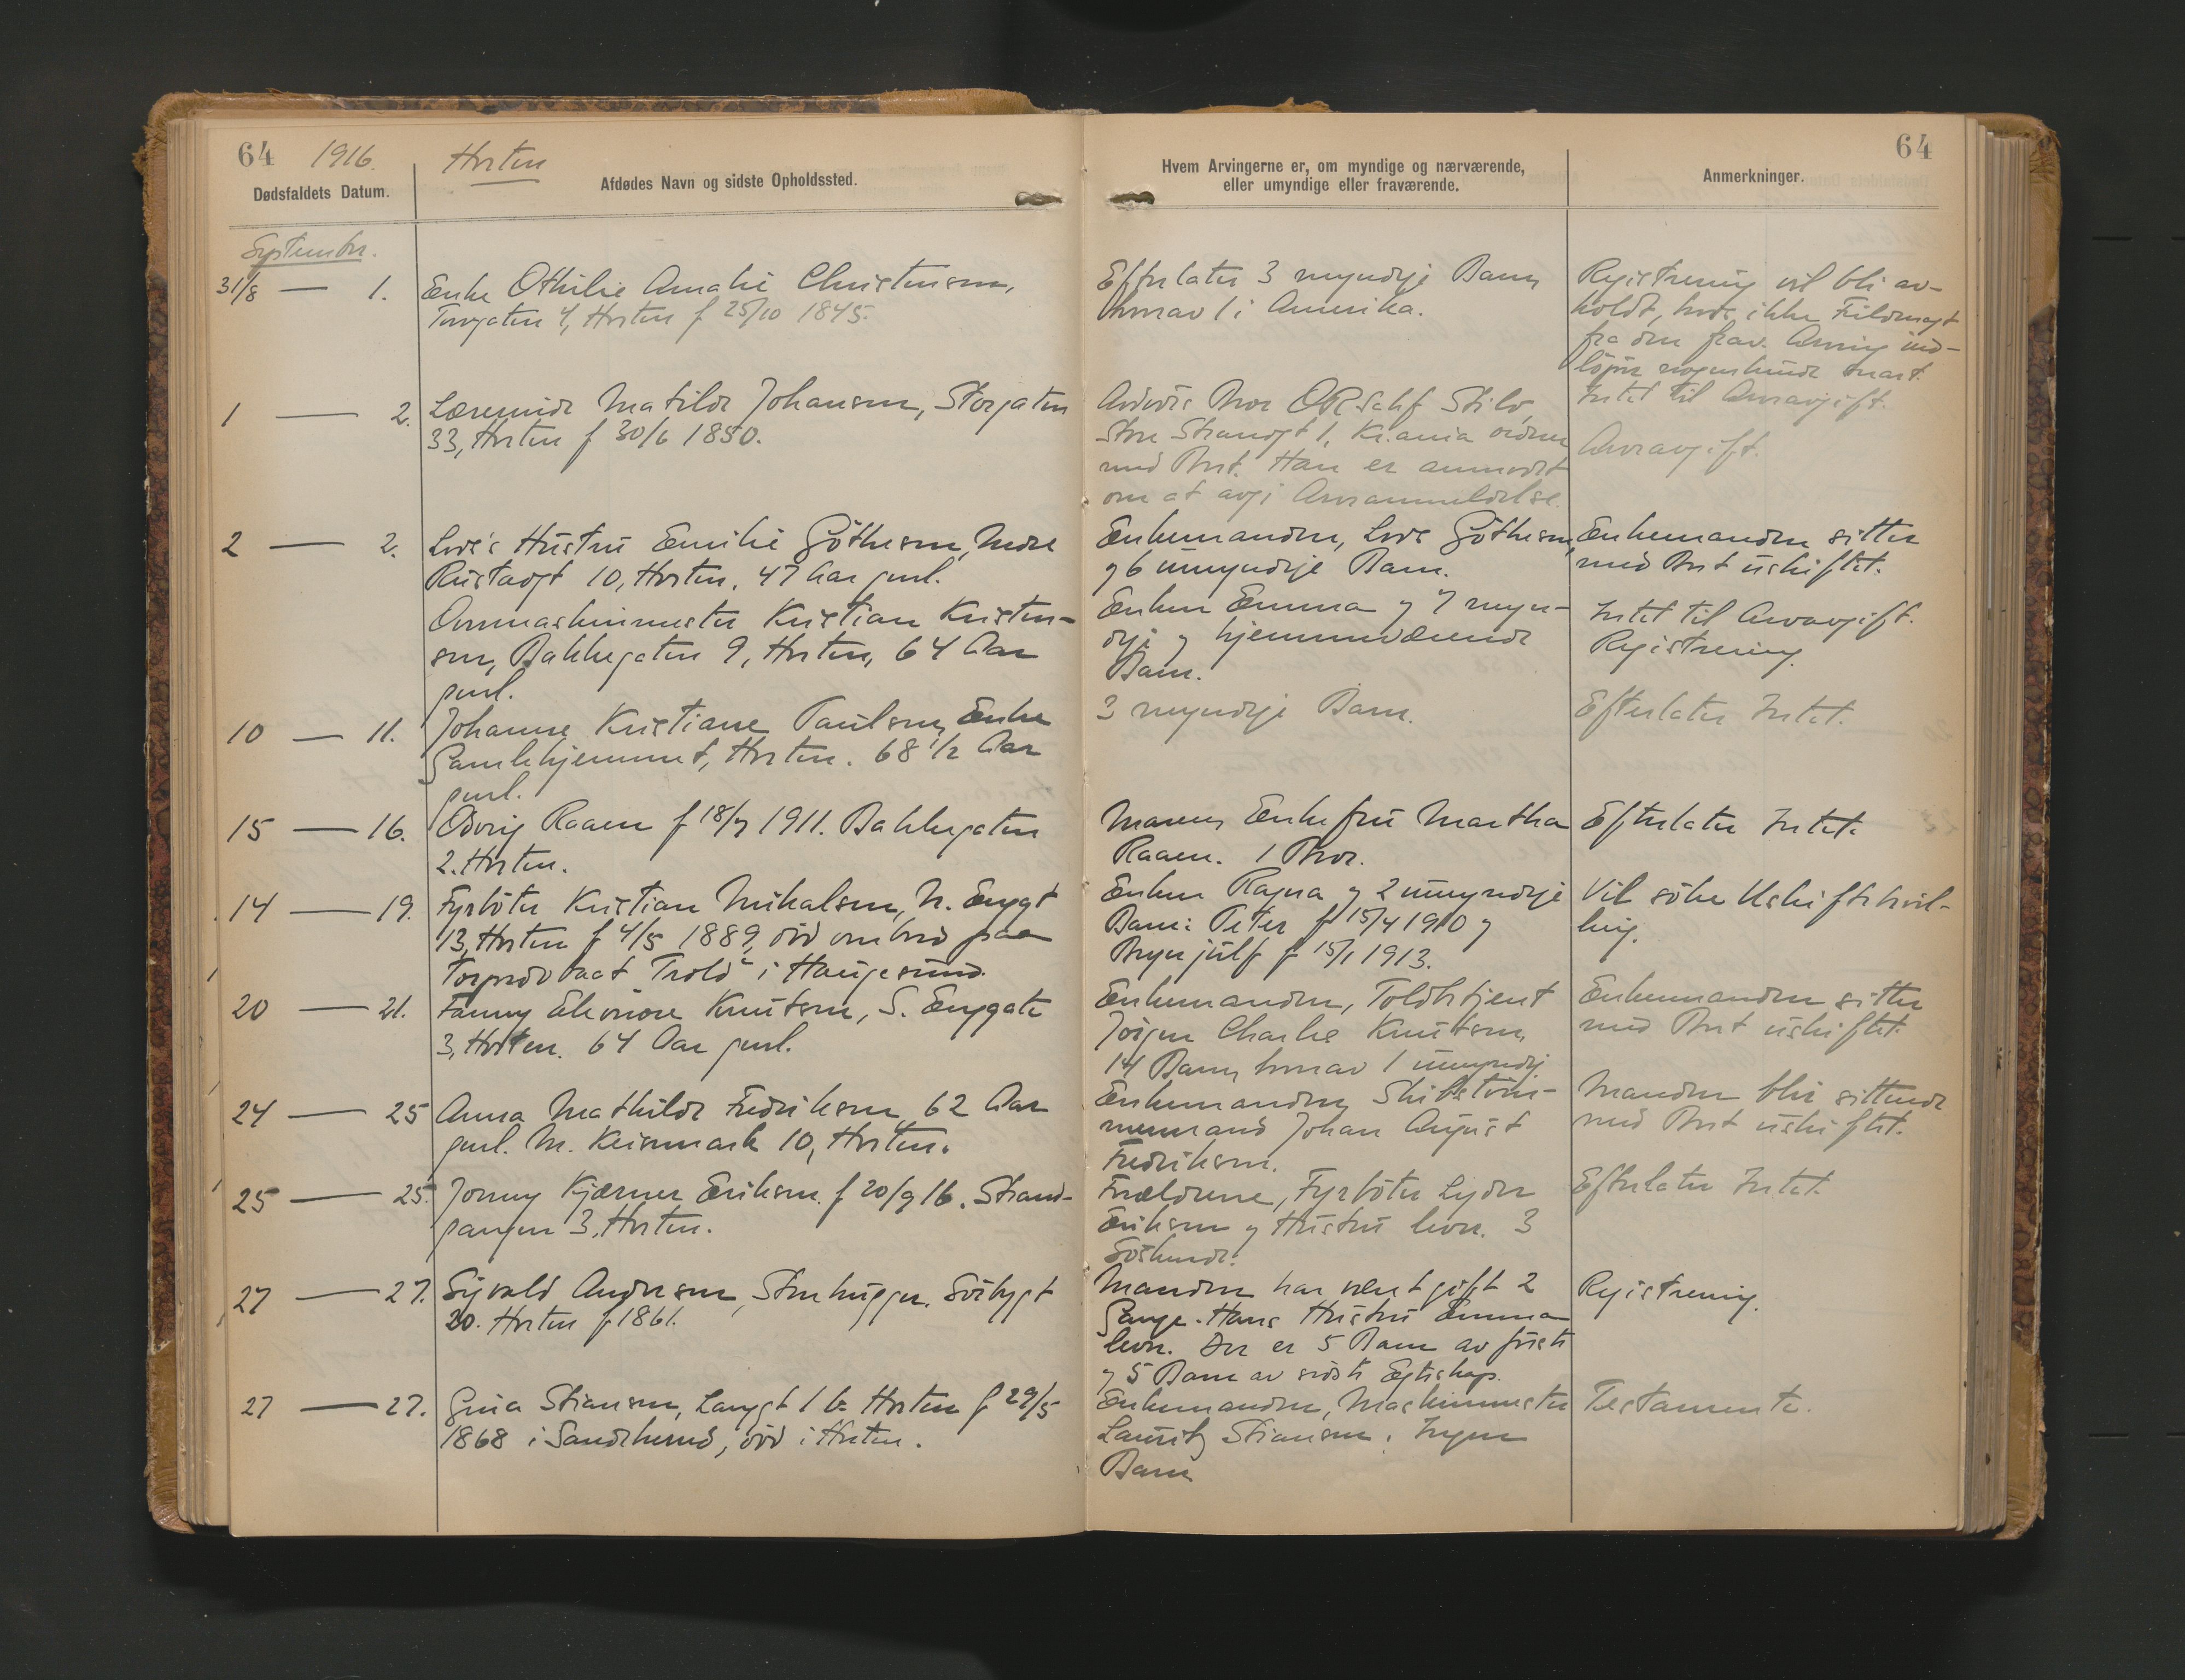 64 1916. Horten
Dødsfaldets Datum.
Afdødes Navn og sidste Opholdssted.
September.
31/8 — 1.
Enke Othilie Amalie Christensen,
Torvgaten 4, Horten f 25/10 1845.
1 — 2.
Lærerinde Matilde Johansen, Storgaten
33, Horten f 30/6 1850.
2 — 2.
Lods Hustru Emilie Göthesen, Nedre
Rustadgt 10, Horten, 47 Aar gml.
Ovnmaskinmester Kristian Kristen-
sen, Bakkegaten 9, Horten, 64 Aar
gml.
10 — 11.
Johanne Kristiane Paulsen, Enke
Gamlehjemmet, Horten. 68 1/2 Aar
gml.
15 — 16.
Oddvig Raaen f 18/7 1911. Bakkegaten
2. Horten.
14 — 19.
Fyrböter Kristian Mikalsen, N. Enggt
13, Horten f 4/5 1889, död ombord paa
Torpedobaat "Trold" i Haugesund.
20 — 21.
Fanny Eleonore Knutsen, S. Enggate
3, Horten. 64 Aar gml.
24 — 25
Anna Mathilde Fredriksen, 62 Aar
gml. M. Keisemark 10, Horten.
25 — 25.
Jonny Kjærner Eriksen. f 20/9 16. Strand-
gangen 3, Horten.
27 — 27.
Sigvald Andersen, Stenhugger. Söbygt
20. Horten f 1861.
27 — 27.
Gina Stiansen, Langgt 1 b. Horten f 29/5
1868 i Sandeherred, död i Horten.
64
Hvem Arvingerne er, om myndige og nærværende,
eller umyndige eller fraværende.
Efterlater 3 myndige Barn,
hvorav 1 i Amerika.
Avdødes Bror
Store Strandgt 1, Kr.ania ordner
med Boet. Han er anmodet
om at avgi Arveanmeldelse.
Enkemanden, Lods Göthesen,
og 6 umyndige Barn.
Enken Emma og 7 myn-
dige og hjemmeværende
Barn.
3 myndige Barn.
Moren, Enkefru Martha
Raaen. 1 Bror.
Enken Ragna og 2 umyndige
Barn: Peter f 15/4 1910 og
Brynjulf f 15/1 1913.
Enkemanden, Toldbetjent
Jörgen Charles Knutsen,
14 Barn, hvorav 1 umyndig.
Enkemanden, Skibstöm-
mermand Johan August
Fredriksen.
Forældrene, Fyrböter Lyder
Eriksen og Hustru lever. 3
Söskende.
Manden har været gift 2
Gange. Hans Hustru Emma
lever. Der er 5 Barn av förste
og 5 Barn av sidste Egteskap.
Enkemanden, Maskinmester
Lauritz Stiansen. Ingen
Barn
Anmerkninger.
Registrering vil bli av-
holdt, hvis ikke Fuldmagt
fra den frav. Arving ind-
löper nogenlunde snart.
Intet til Arveavgift.
Arveavgift.
Enkemanden sitter
med Boet uskiftet.
Intet til Arveavgift.
Registrering.
Efterlater Intet.
Efterlater Intet.
Vil söke Uskiftebevil-
ling.
Enkemanden sitter
med Boet uskiftet.
Manden blir sittende
med Boet uskiftet.
Efterlater Intet.
Registrering.
Testamente.